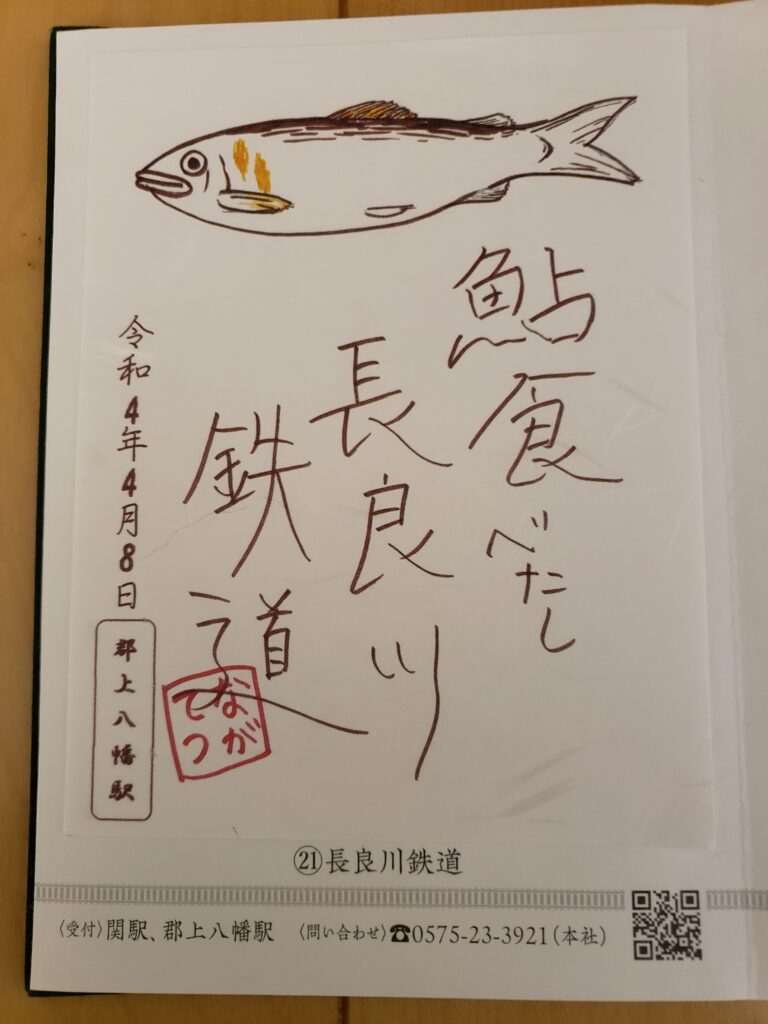 鮎食べたし
長良川
鉄道
ながてつ
令和4年4月8日
郡上八幡駅
㉑長良川鉄道
〈受付〉関駅、郡上八幡駅 〈問い合わせ〉☎0575-23-3921(本社)